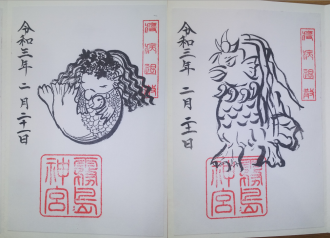 疫病退散
令和三年 二月二十一日
霧島
神宮
疫病退散
令和三年 二月二十一日
霧島
神宮